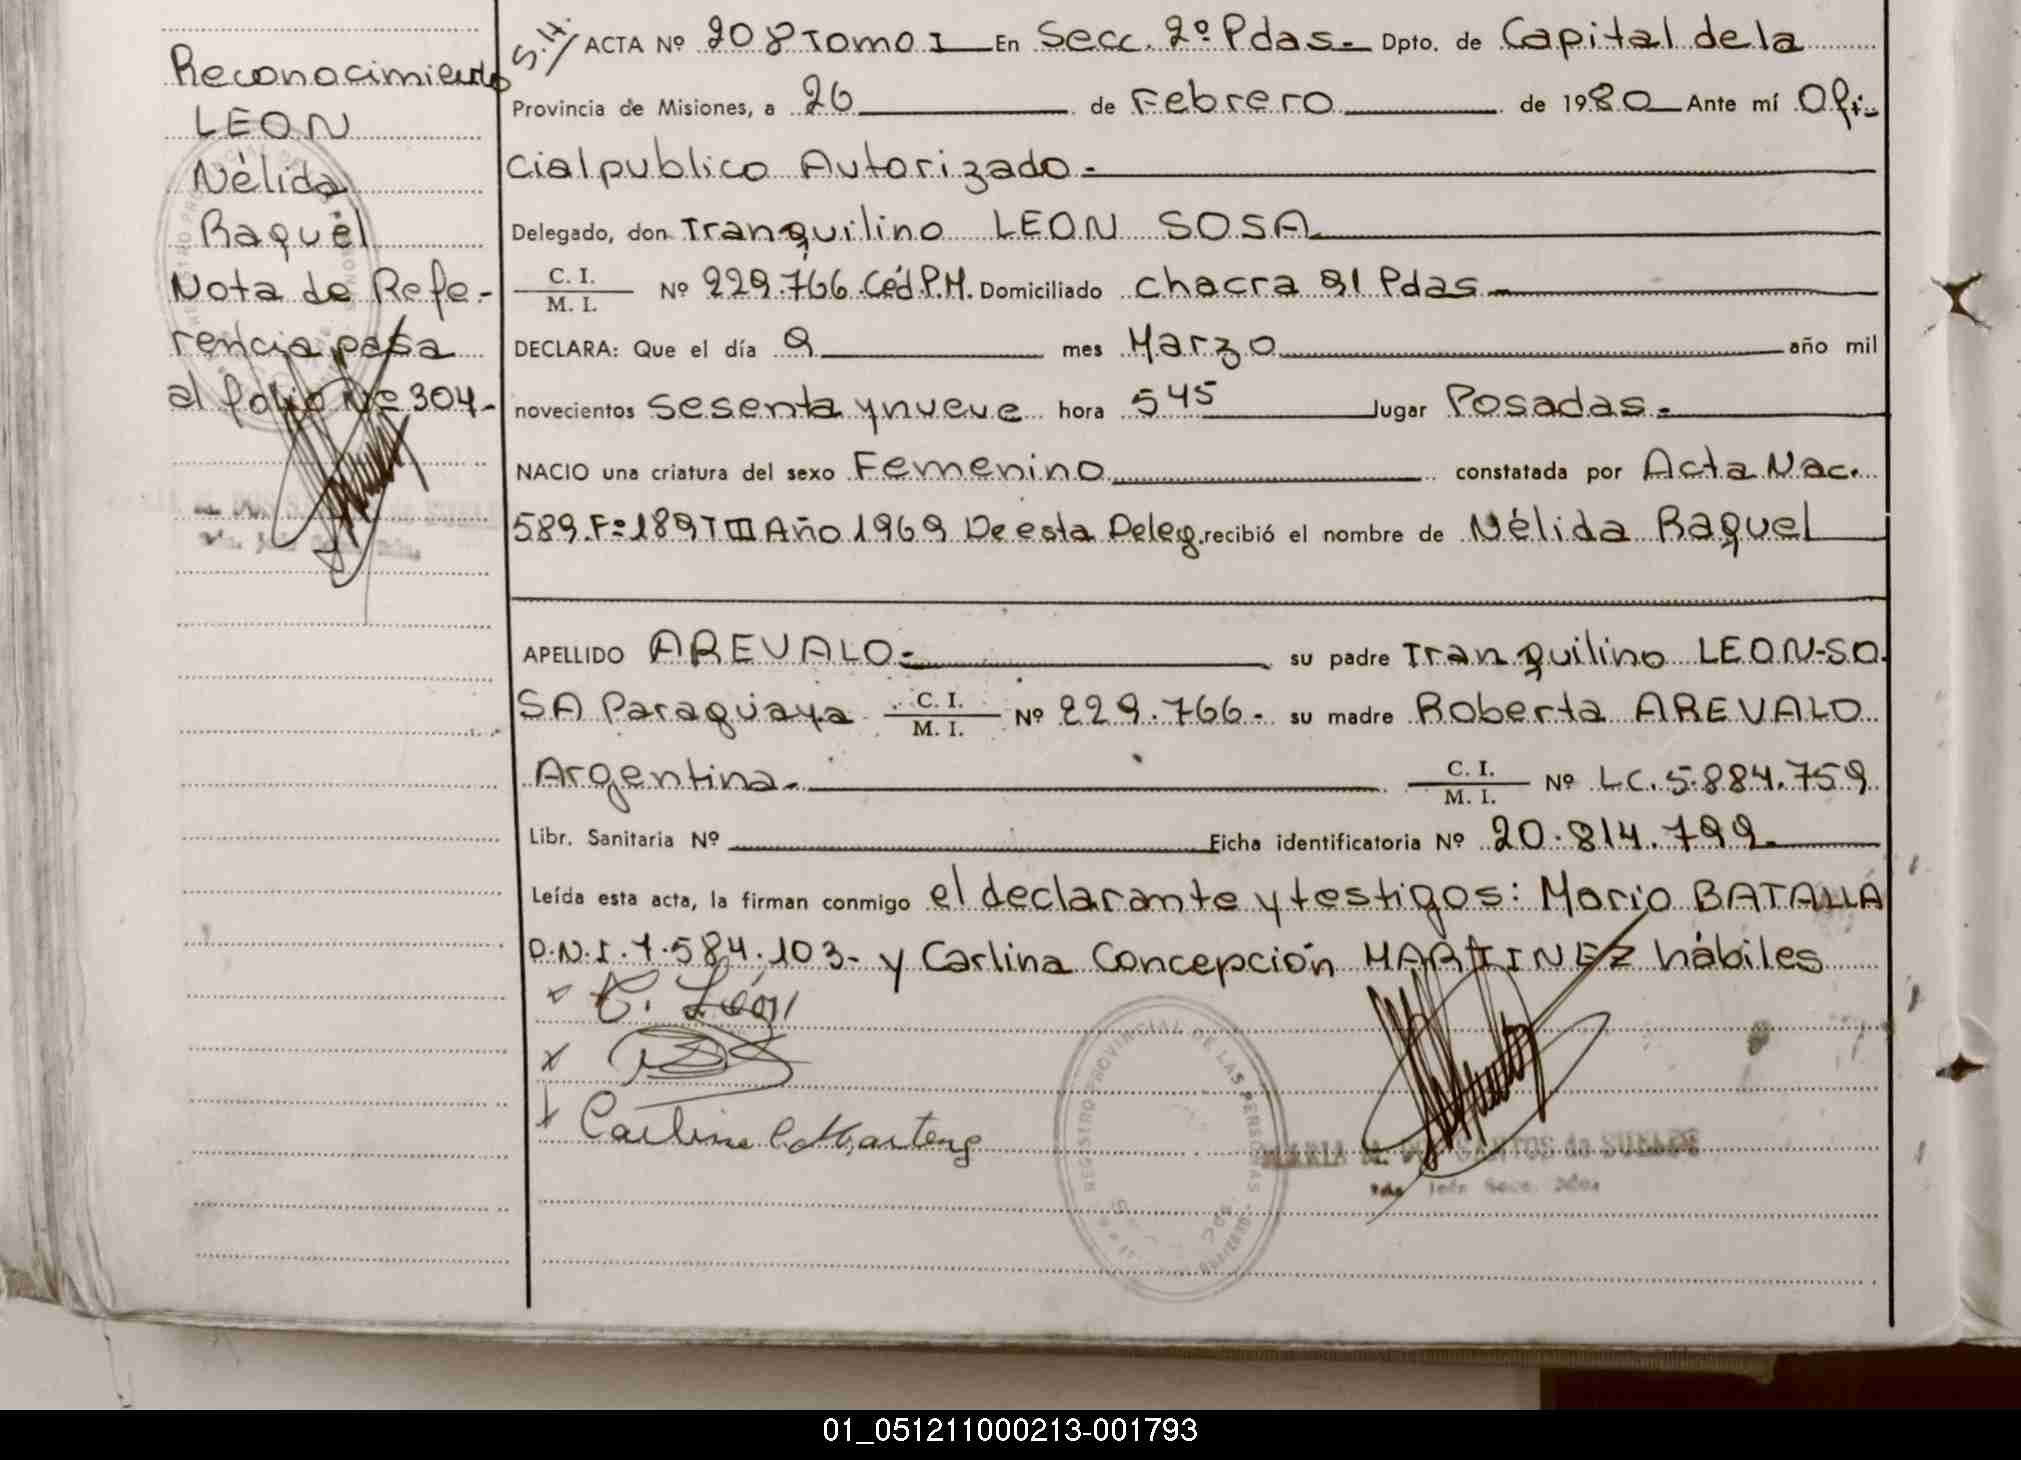 Reconocimiento
LEON
Nélida
Raquel
Nota de Refe-
rencia pasa
al folio Nº 304-
S.H. ACTA Nº 208 Tomo I En Secc. 2º Pdas.- Dpto. de Capital de la
Provincia de Misiones, a 26 de Febrero de 1980 Ante mí Ofi-
cial publico Autorizado.-
Delegado, don Tranquilino LEON SOSA
C. I.
M. I. Nº 229.766 Céd.P.M. Domiciliado chacra 91 Pdas.-
DECLARA: Que el día 9 mes Marzo año mil
novecientos sesenta y nueve hora 5 45 lugar Posadas.-
NACIO una criatura del sexo Femenino constatada por Acta Nac.
589 Fº 189 T III Año 1969 De esta Deleg. recibió el nombre de Nélida Raquel
APELLIDO AREVALO.- su padre Tranquilino LEON-SO
SA Paraguaya C. I.
M. I. Nº 229.766.- su madre Roberta AREVALO
Argentina.- C. I.
M. I. Nº LC. 5.884.759
Libr. Sanitaria Nº Ficha identificatoria Nº 20.814.799
Leída esta acta, la firman conmigo el declarante y testigos: Mario BATALLA
D.N.I. 7.584.103- y Carlina Concepción MARTINEZ hábiles
T. León
Carlina C Martinez
REGISTRO PROVINCIAL DE LAS PERSONAS
SANTOS de SUAREZ
01_051211000213-001793